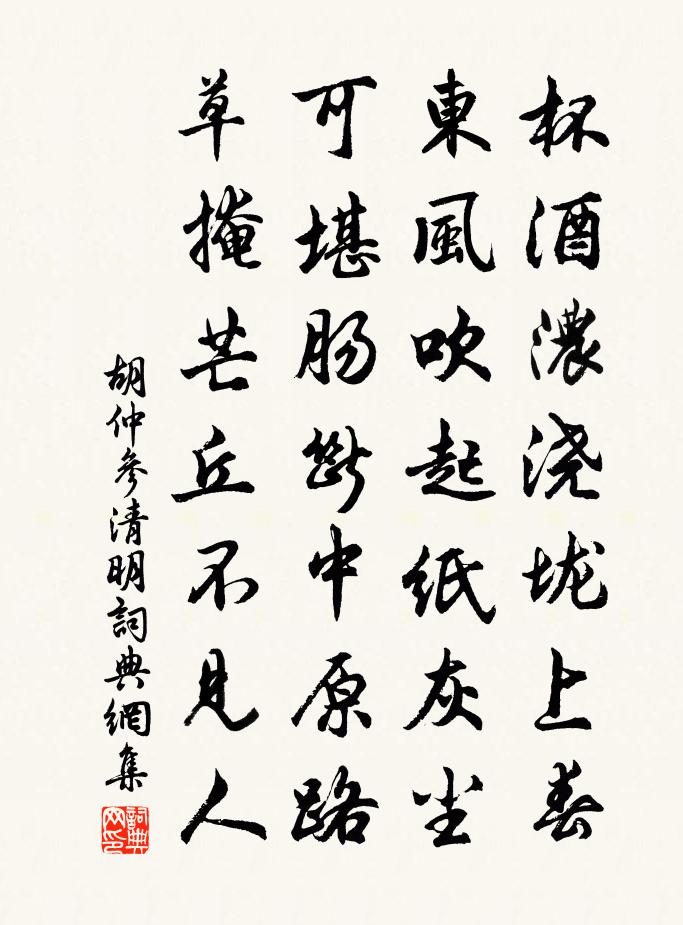 杯酒濃浇垅上春
東風吹起紙灰尘
可堪肠斷中原路
草掩芒丘不見人
胡仲參清明詞典網集
詞典网印